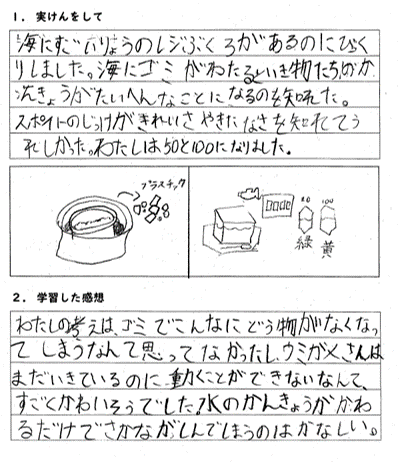 1. 実けんをして
海にすごいりょうのレジぶくろがあるのにびっく
りしました。海にゴミがわたるといき物たちのか
んきょうがたいへんなことになるのを知れた。
スポイトのじっけがきれいさやきたなさを知れてう
れしかった。わたしは50と100になりました。
プラスチック
50 100
緑 黄
2. 学習した感想
わたしの考えは、ゴミでこんなにどう物がなくなっ
てしまうなんて思ってなかったし、ウミガメさんは
まだいきているのに動くことができないなんて、
すごくかわいそうでした。水のかんきょうがかわ
るだけでさかながしんでしまうのはかなしい。